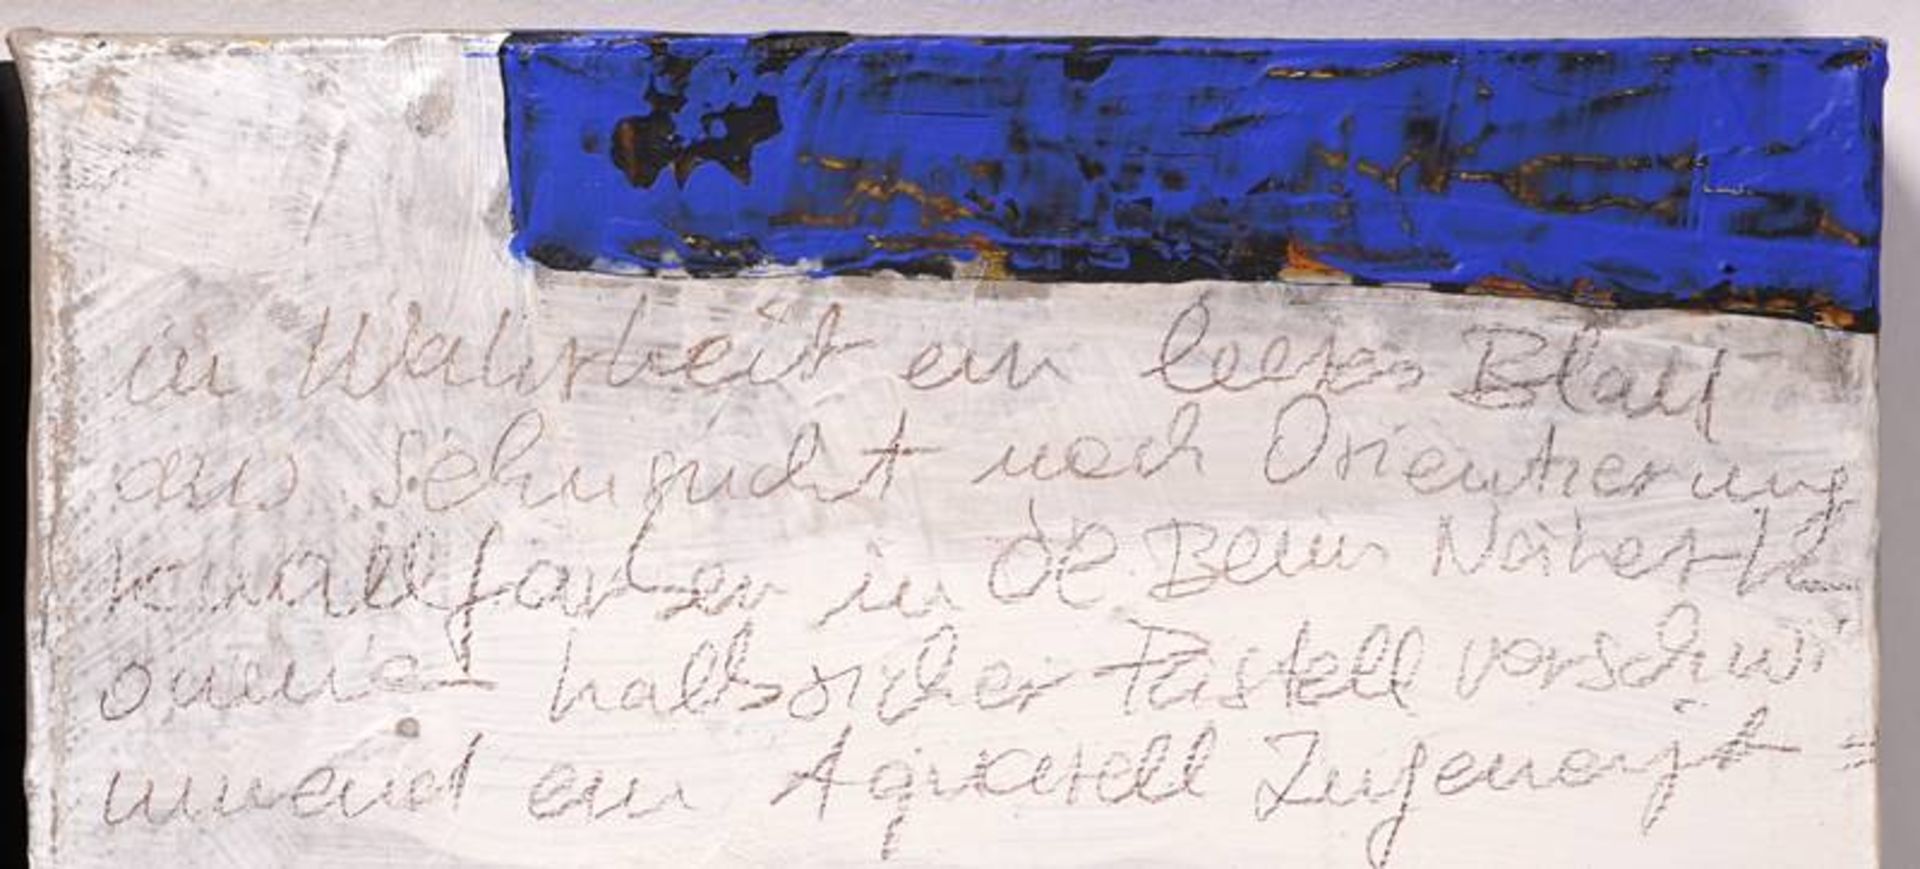 in Wahrheit ein leeres Blatt
aus Sehnsucht nach Orientierung
Knallfarben in de Beim Näherk
ommen halbsicher Pastell verschwi
mmend ein Aquarell Zugeneigt =